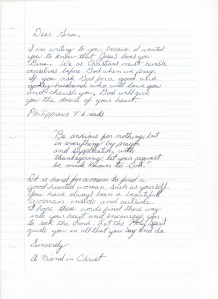 Dear Gina,
I am writing to you because I wanted
you to know that Jesus loves you
Gina. We as Christians must humble
ourselves before God when we pray.
If you ask God for a good and
godly husband who will love you
and cherish you, God will give
you the desire of your heart.
Philippians 4:6 reads
"Be anxious for nothing, but
in everything by prayer
and supplication with
thanksgiving let your request
be made known to God."
It is hard for a man to find a
good hearted woman, such as yourself.
You have always been a beautiful
woman inside and outside.
I hope these words find there way
into your heart and encourage you
to seek the Lord. Let the Holy Spirit
guide you in all that you say and do.
Sincerely
A Friend in Christ